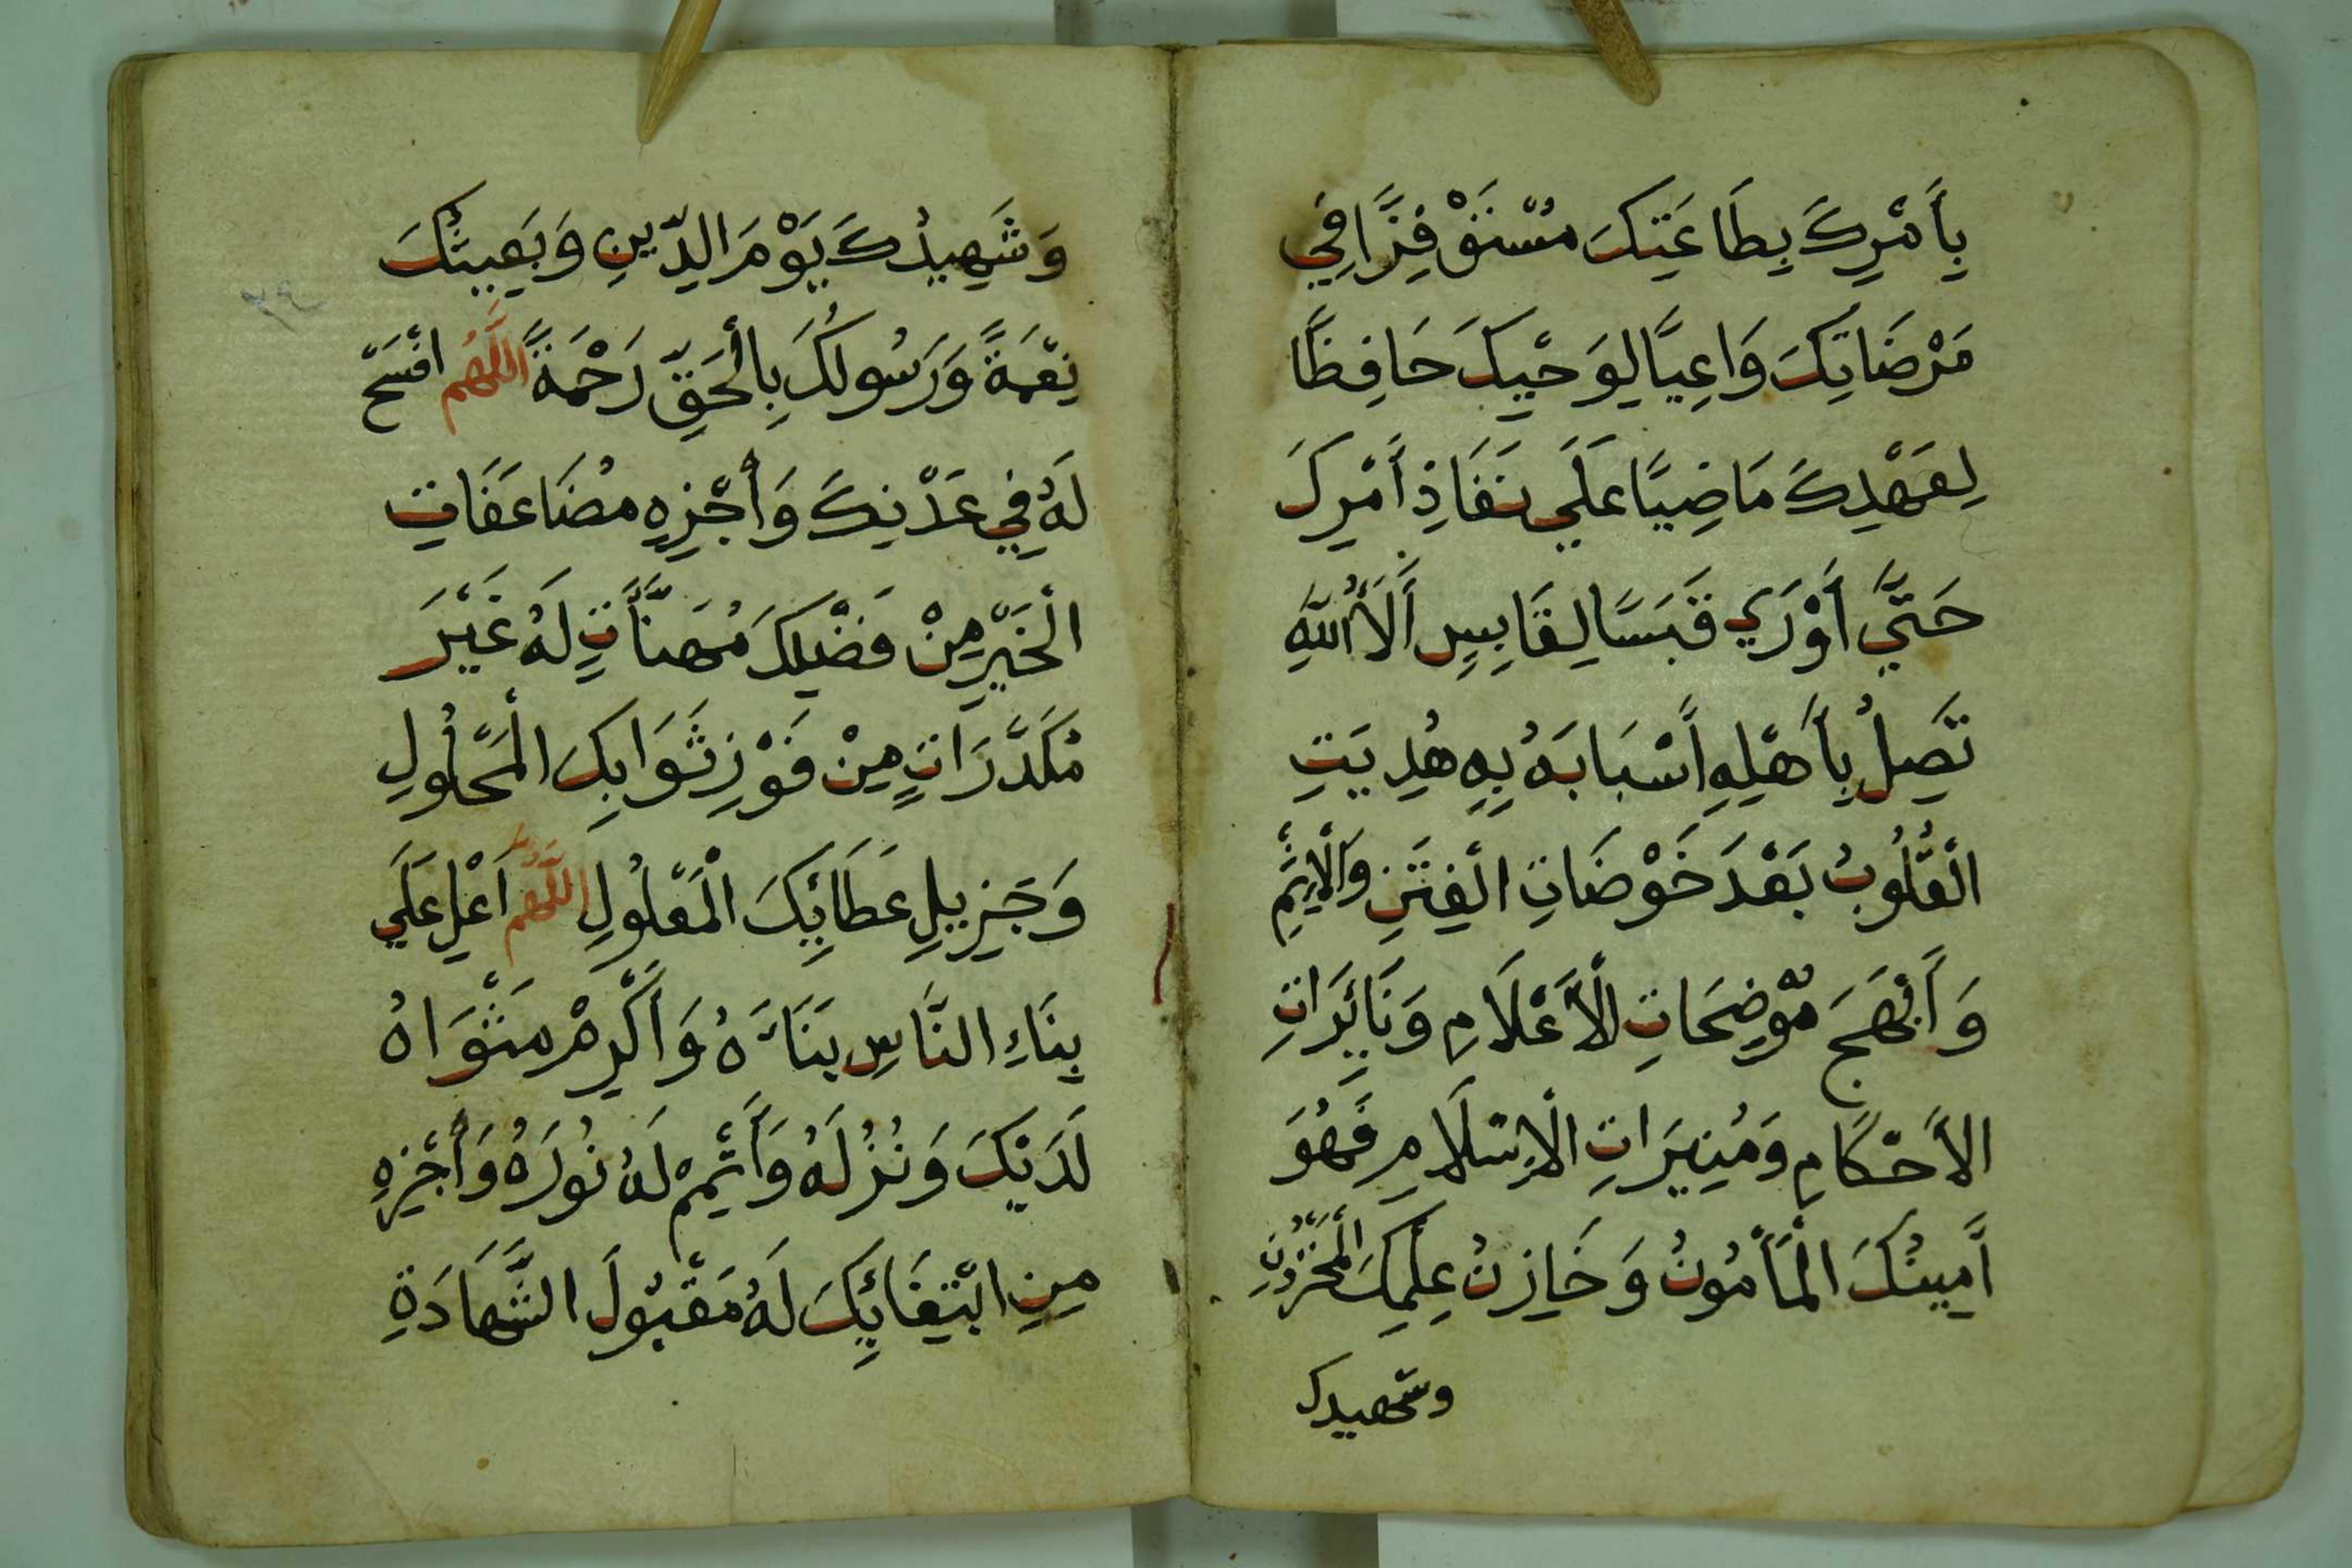 بِأَمْرِكَ بِطَاعَتِكَ مُسْتَوْفِزًا فِي
مَرْضَاتِكَ وَاعِيًا لِوَحْيِكَ حَافِظًا
لِعَهْدِكَ مَاضِيًا عَلَي نَفَاذِ أَمْرِكَ
حَتَّي أَوْرَي قَبَسًا لِقَابِسٍ أَلَاءُ اللَّهِ
تَصِلُ بِأَهْلِهِ أَسْبَابَهُ بِهِ هُدِيَتِ
الْقُلُوبُ بَعْدَ خَوْضَاتِ الْفِتَنِ وَالْإِثْمِ
وَأَبْهَجَ مُوضِحَاتِ الْأَعْلَامِ وَنَائِرَاتِ
الأَحْكَامِ وَمُنِيرَاتِ الْإِسْلَامِ فَهُوَ
أَمِينُكَ الْمَأْمُونُ وَخَازِنُ عِلْمِكَ الْمَخْزُونِ
وشهيدك
وَشَهِيدُكَ يَوْمَ الدِّينِ وَبَعِيثُكَ
نِعْمَةً وَرَسُولُكَ بِالْحَقِّ رَحْمَةً اللَّهُمَّ افْسَحْ
لَهُ فِي عَدْنِكَ وَأَجْزِهِ مُضَاعَفَاتِ
الْخَيْرِ مِنْ فَضْلِكَ مُهَنَّأَتٍ لَهُ غَيْرَ
مُكَدَّرَاتٍ مِنْ فَوْزِ ثَوَابِكَ الْمَحْلُولِ
وَجَزِيلِ عَطَائِكَ الْمَعْلُولِ اللَّهُمَّ أَعْلِ عَلَي
بِنَاءِ النَّاسِ بِنَاءَهُ وَأَكْرِمْ مَثْوَاهُ
لَدَيْكَ وَنُزُلَهُ وَأَتْمِمْ لَهُ نُورَهُ وَأَجْزِهِ
مِنِ ابْتِعَائِكَ لَهُ مَقْبُولَ الشَّهَادَةِ